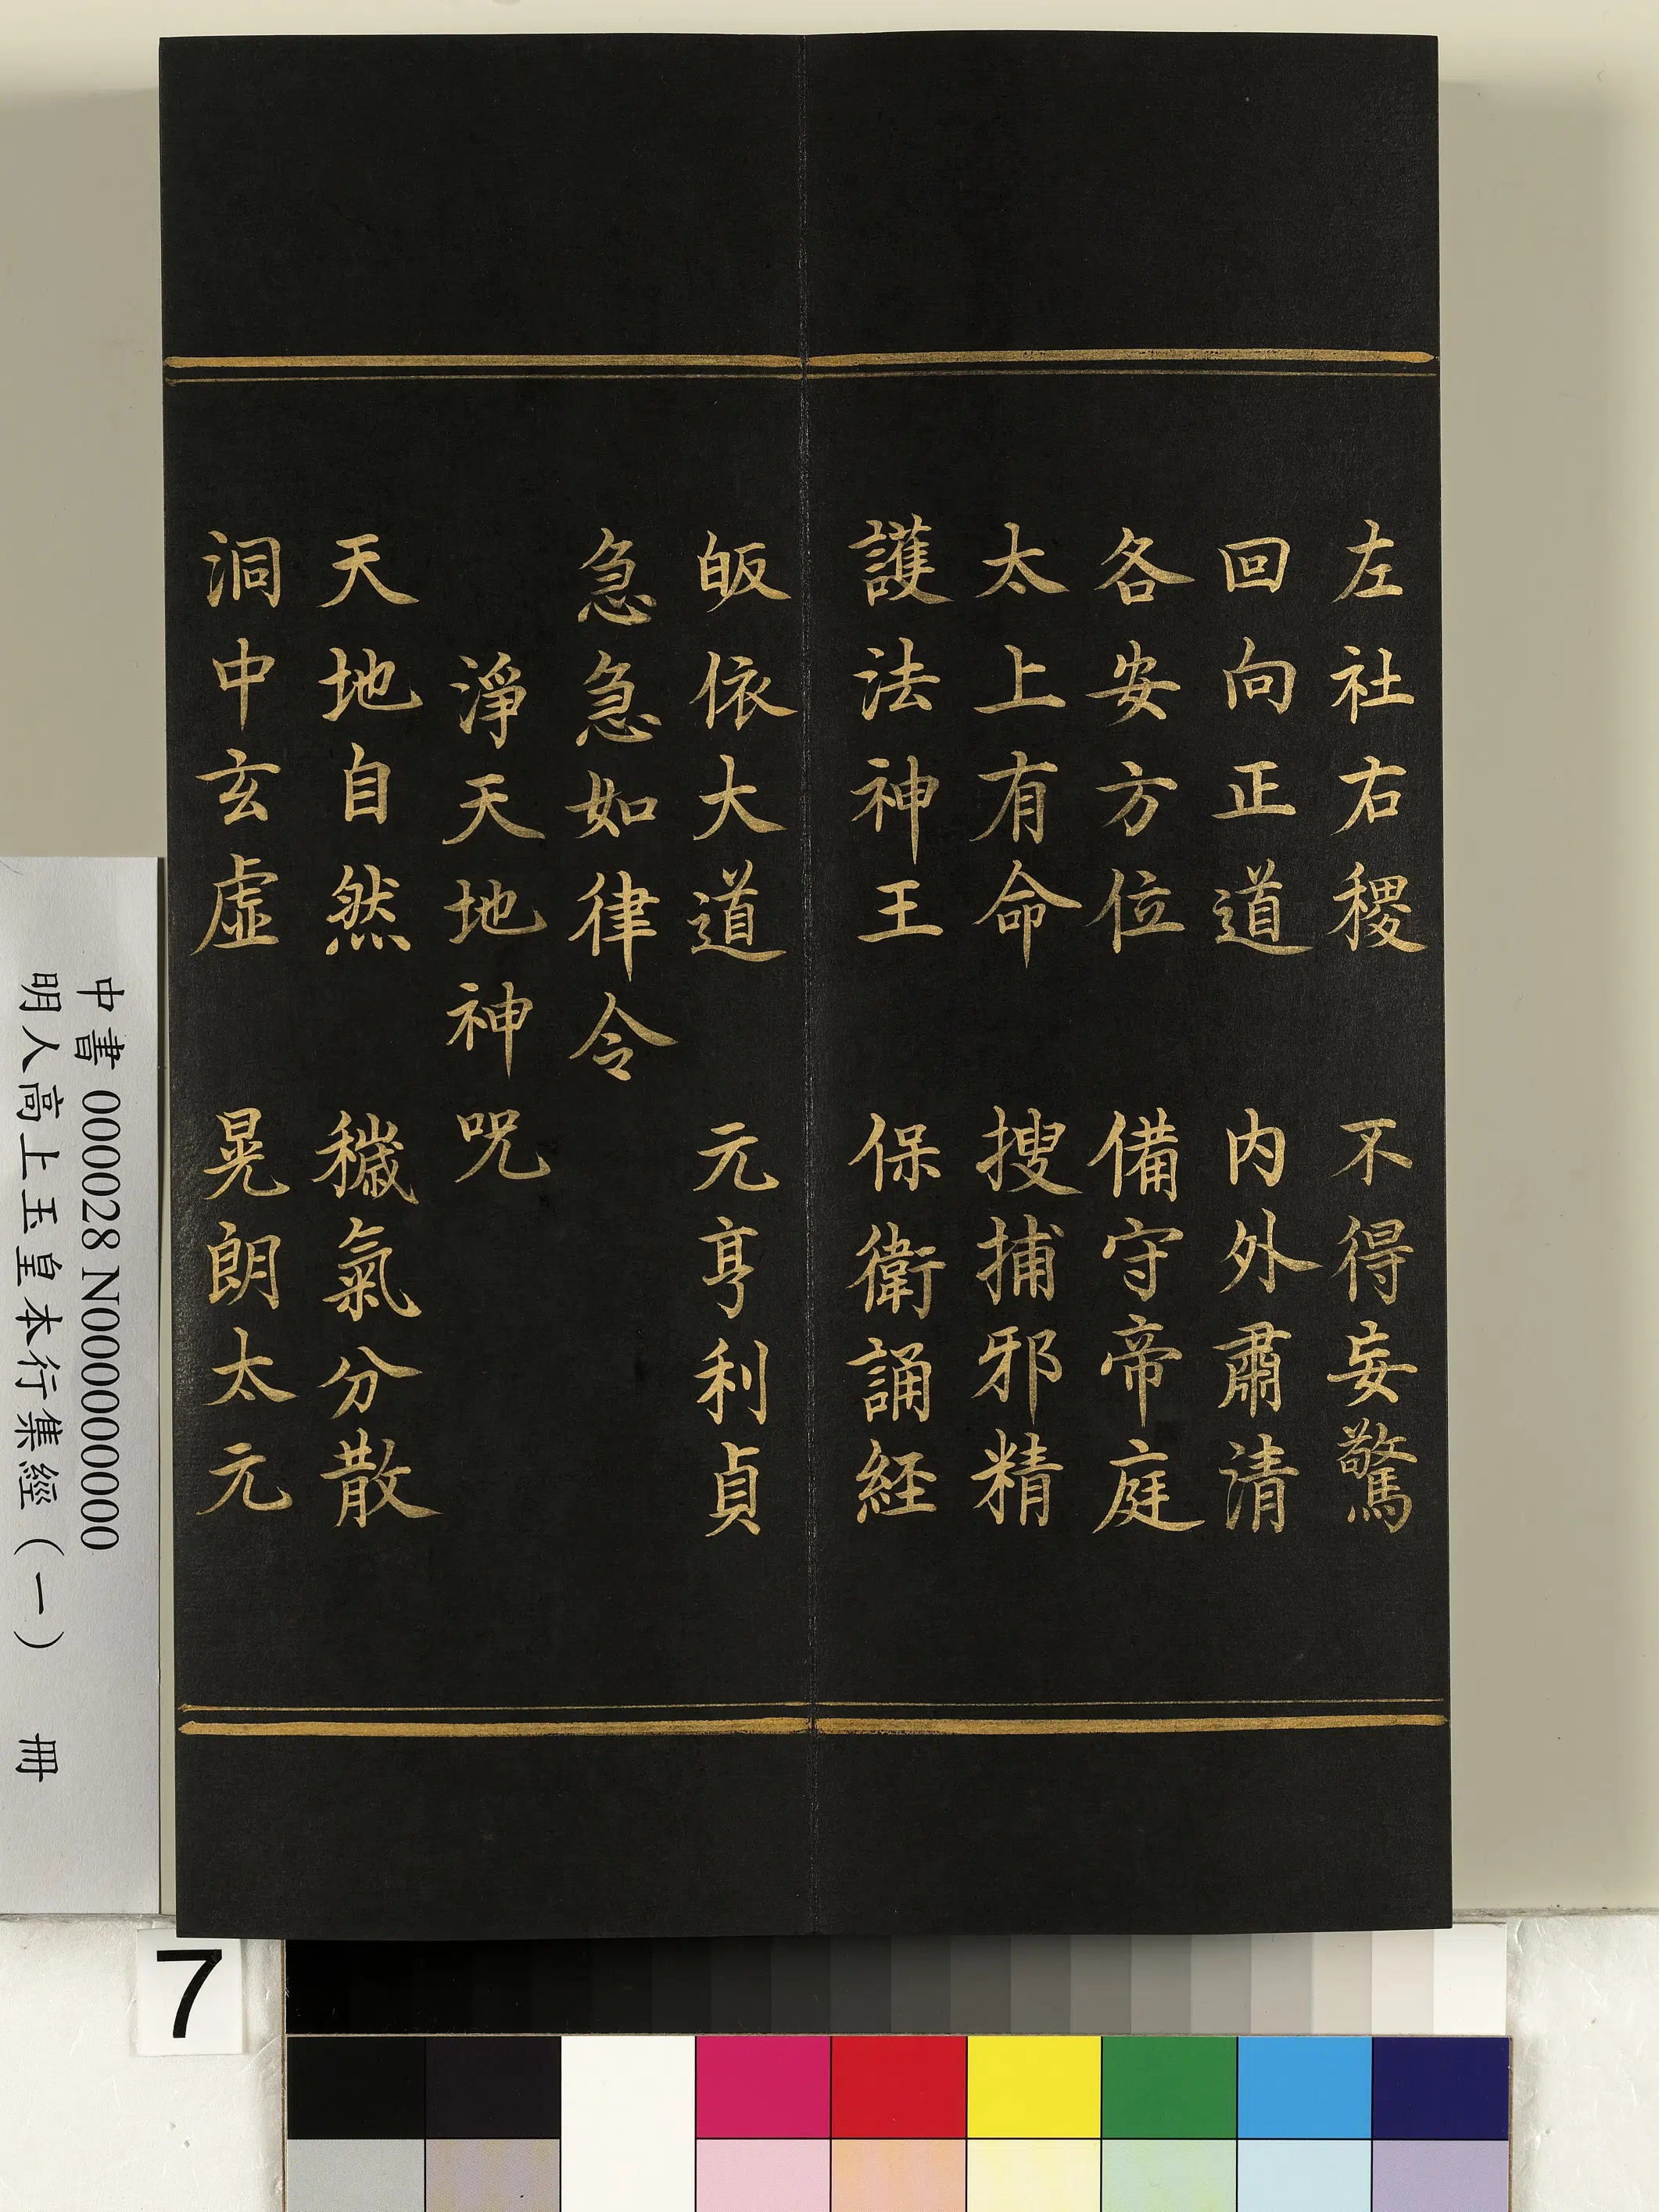 左社右稷　不得妄驚
回向正道　内外肅清
各安方位　備守帝庭
太上有命　搜捕邪精
護法神王　保衛誦経
皈依大道　元亨利貞
急急如律令
淨天地神咒
天地自然　穢氣分散
洞中玄虛　晃朗太元
中書 000028 N000000000
明人高上玉皇本行集經（一）　冊
7